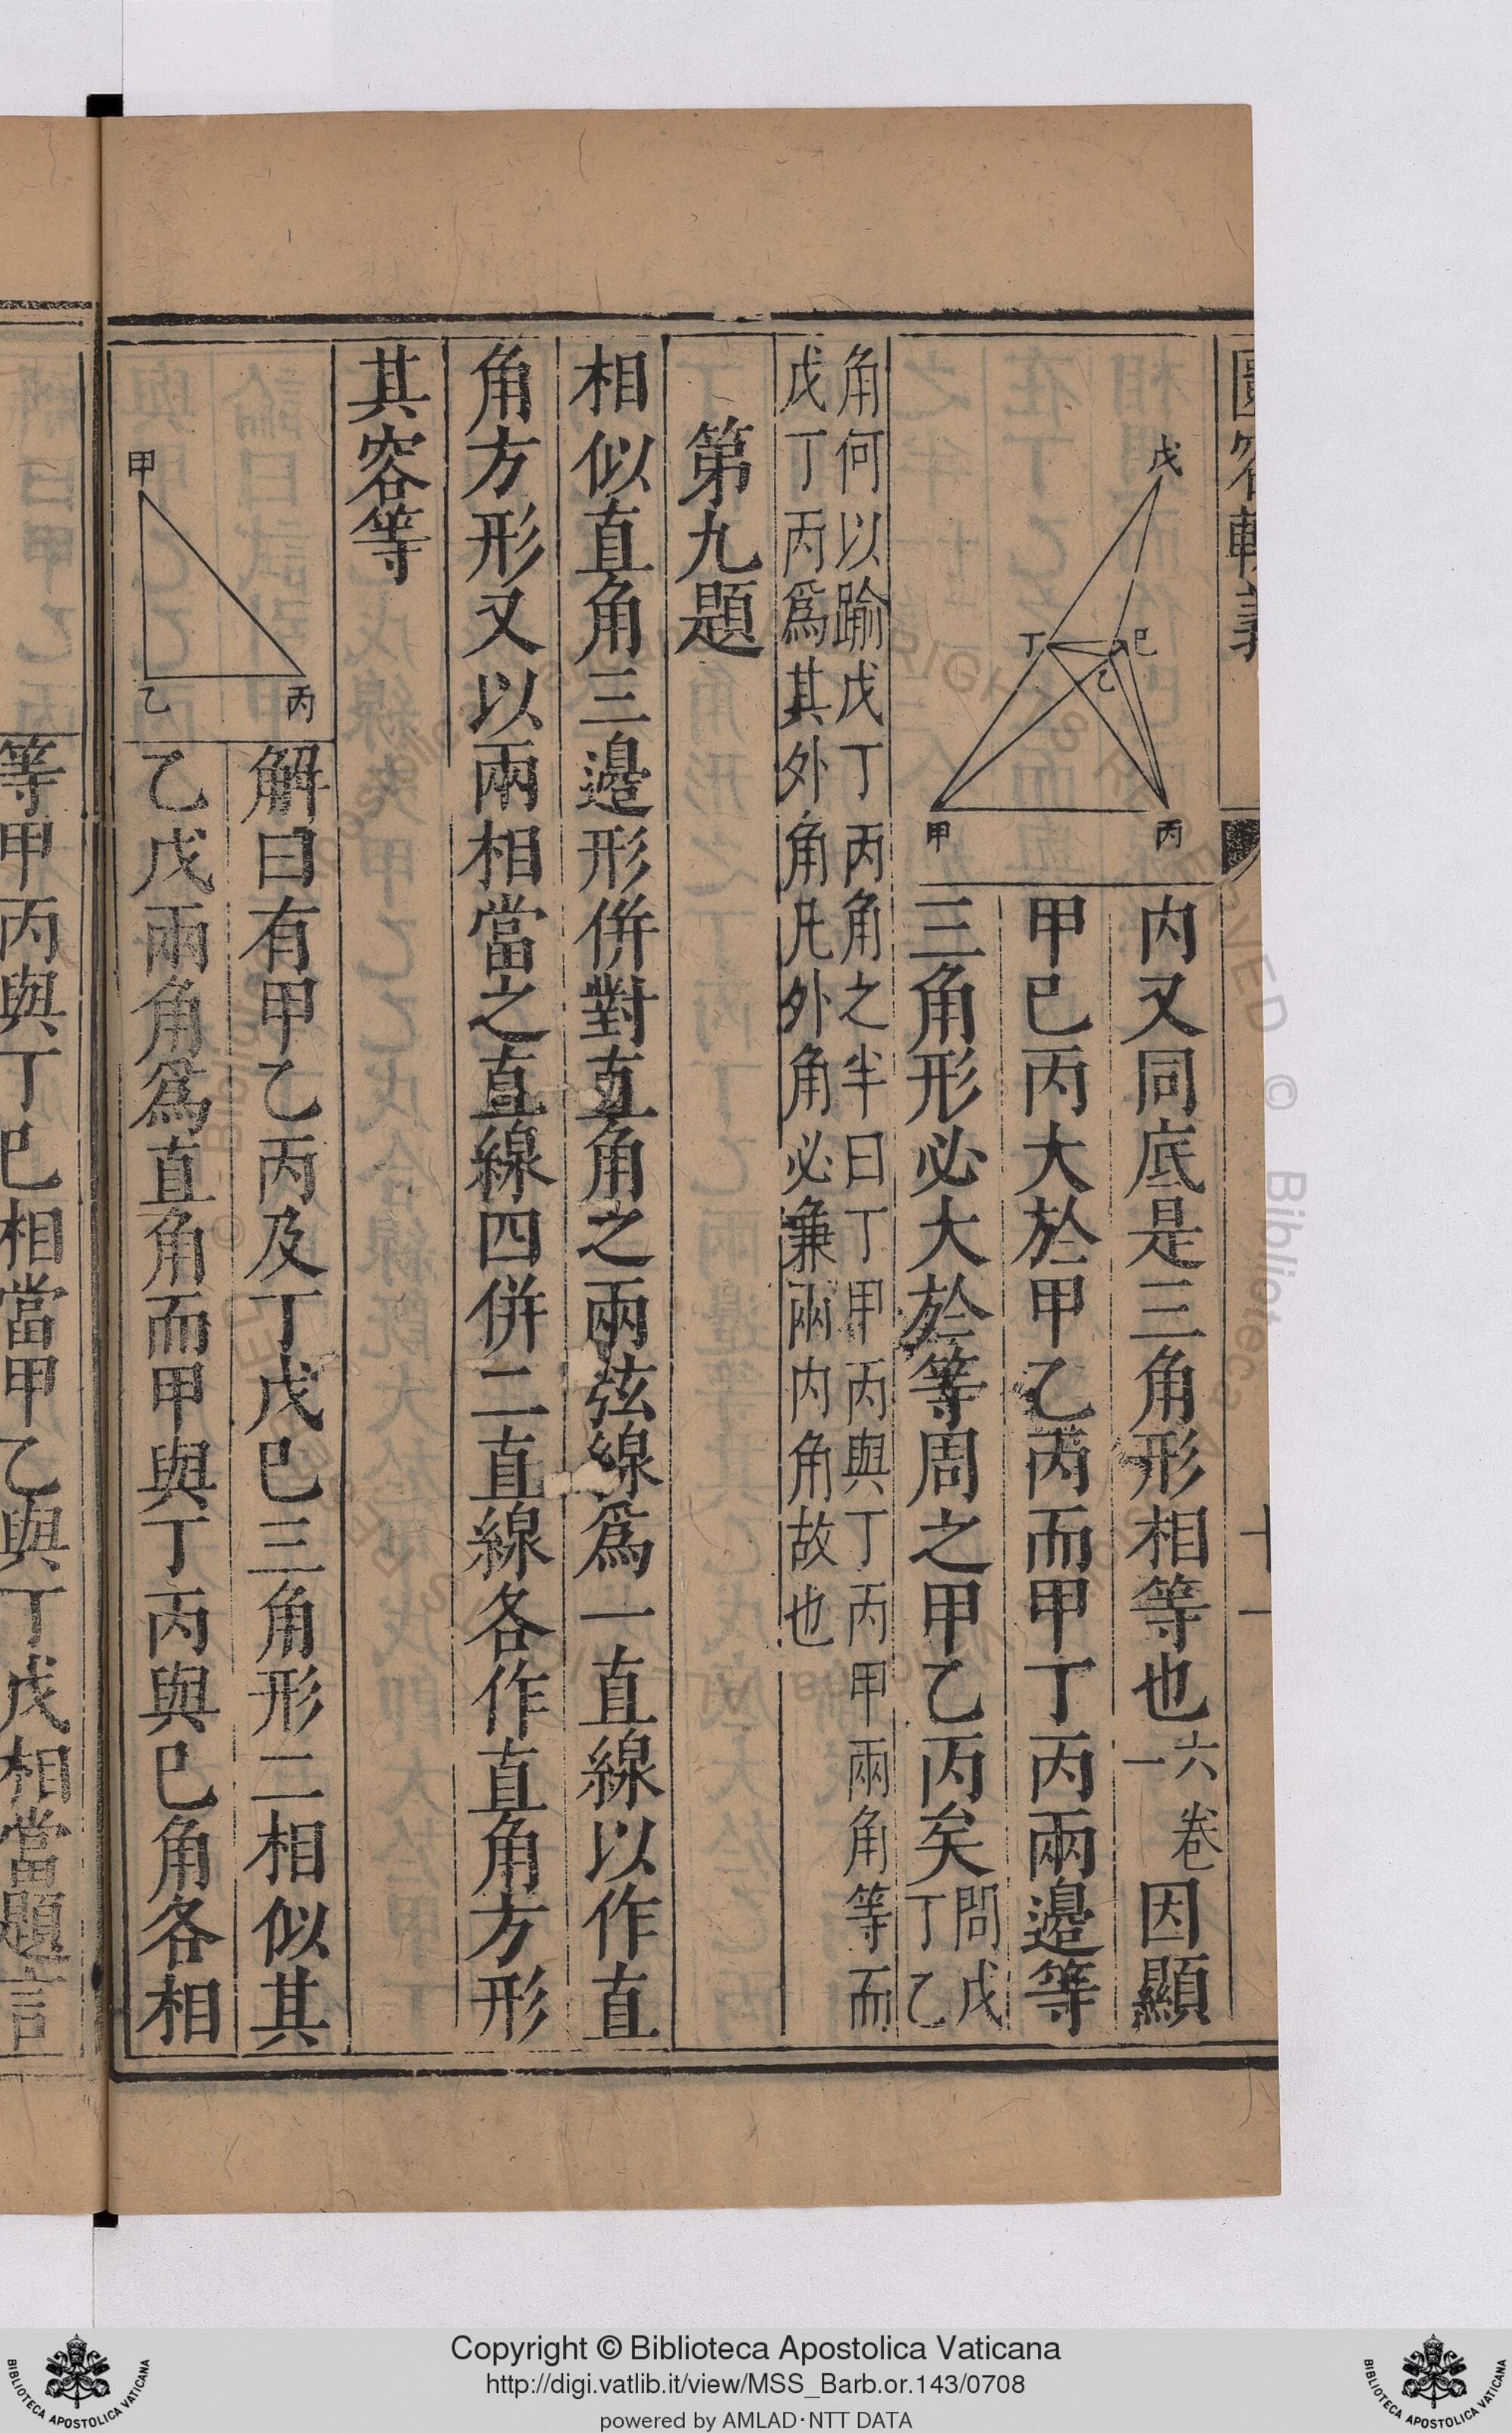 圜容較義
十一
戊
丁
巳
乙
甲
丙
内又同底是三角形相等也六卷一因顯
甲巳丙大於甲乙丙而甲丁丙兩邊等
三角形必大於等周之甲乙丙矣問戊丁乙
角何以踰戊丁丙角之半曰丁甲丙與丁丙甲兩角等而
戊丁丙爲其外角凡外角必兼兩内角故也
第九題
相似直角三邊形併對直角之兩弦線爲一直線以作直
角方形又以兩相當之直線四併二直線各作直角方形
其容等
甲
乙
丙
解曰有甲乙丙及丁戊巳三角形二相似其
乙戊兩角爲直角而甲與丁丙與巳角各相
等甲丙與丁巳相當甲乙與丁戊相當題言
Copyright © Biblioteca Apostolica Vaticana
http://digi.vatlib.it/view/MSS_Barb.or.143/0708
powered by AMLAD·NTT DATA
BIBLIOTECA APOSTOLICA VATICANA
BIBLIOTECA APOSTOLICA VATICANA